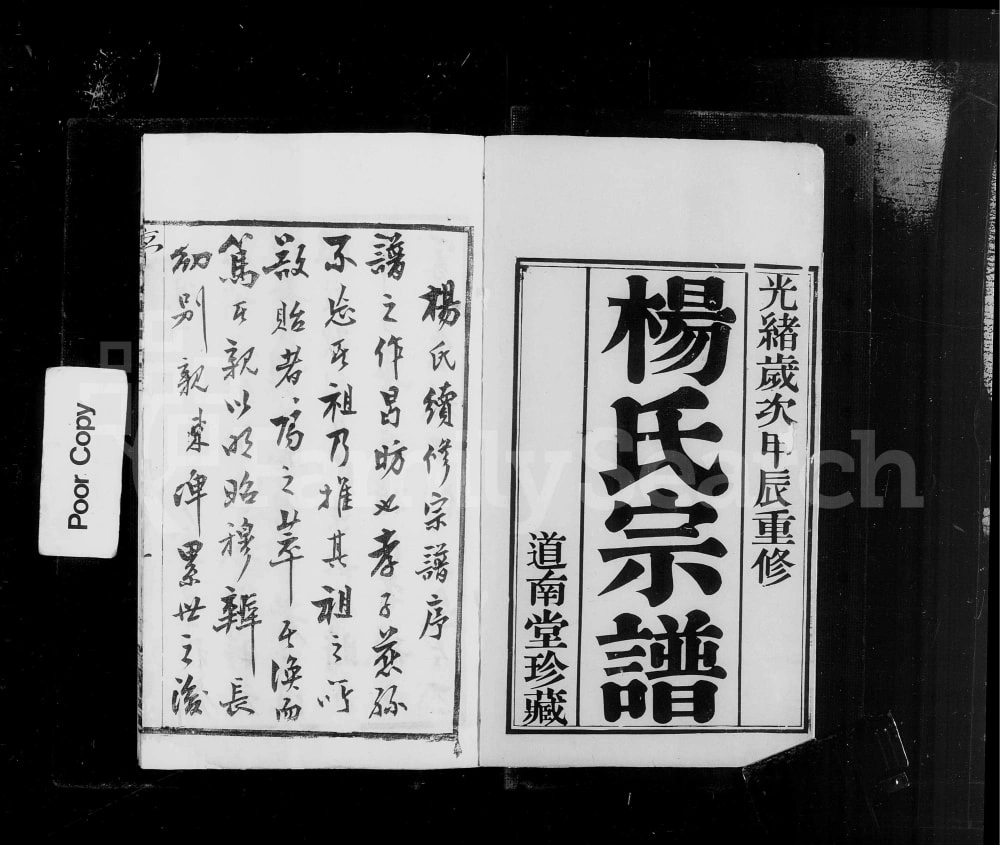 光緒歲次甲辰重修
楊氏宗譜
道南堂珍藏
楊氏續修宗譜序
譜之作曷昉也孝子慈孫
不忘其祖乃推其祖之所
貽者為之萃其渙而
篤其親以明昭穆辨長
幼別親疎俾累世之後
Poor Copy
FamilySearch